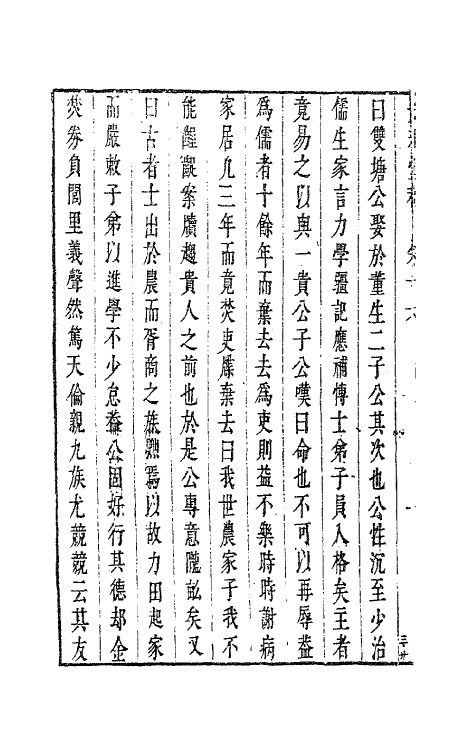 曰雙塘公娶於董生二子公其次也公性沉至少治
儒生家言力學彊記應補博士弟子員入格矣主者
竟易之以與一貴公子公嘆曰命也不可以再辱葢
為儒者十餘年而棄去去為吏則葢不樂時時謝病
家居凡三年而竟焚吏牒棄去曰我世農家子我不
能齷齪案牘趨貴人之前也於是公專意隴畝矣又
曰古者士出於農而胥商之族點焉以故力田起家
而嚴敕子弟以進學不少怠葢公固好行其德却金
焚券負閭里義聲然篤天倫親九族尤競競云其友